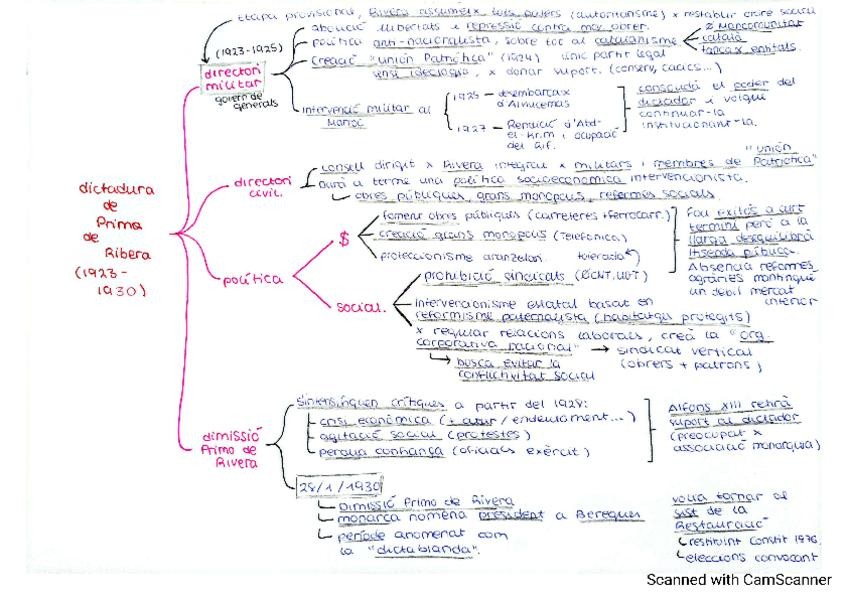 Etapa provisional, Rivera assumeix tots poders (autoritarisme) x restablir ordre social
(1923-1925)
directori
militar
govern de
generals
abolició llibertats i repressió contra mov. obrer.
política anti-nacionalista, sobre tot al catalanisme
Mancomunitat
català
tanca x entitats.
creació "unión Patriótica" (1924) únic partit legal
sense ideologia, x donar suport. (conserv, cacics...)
intervenció militar al
Marroc
1925 - desembarcax
d'Alhucemas
1927 - Rendició d'Abd-
el-Krim i ocupació
del Rif.
consolidà el poder del
dictador i volgué
continuar-la
institucionant-la.
dictadura
de
Primo
de
Ribera
(1923-
1930)
directori
civil.
consell dirigit x Rivera integrau x militars i membres de "unión Patriótica"
durà a terme una política socioeconòmica intervencionista.
obres públiques, grans monopolis, reformes socials
política
$
fomenr obres públiques (carreteres + ferrocarr.)
creació grans monopolis (Telefónica)
proteccionisme aranzelari.
Fou exitós a curt
termini però a la
llarga desequilibrà
Hisenda pública.
Absència reformes
agràries mantingué
un dèbil mercat
interior
social.
tolerada
prohibició sindicats (CNT, UGT)
intervencionisme estatal basat en
reformisme paternalista (habitatges protegits)
x regular relacions laborals, creà la "org.
corporativa nacional" → sindicat vertical
(obrers + patrons)
busca evitar la
conflictivitat social
dimissió
Primo de
Rivera
s'intensifiquen crítiques a partir del 1928:
crisi econòmica (+ atur / endeutament...)
agitació social (protestes)
pèrdua confiança (oficials exèrcit)
Alfons XIII retirà
suport al dictador
(preocupat x
associació monarquia)
28/1/1930
Dimissió Primo de Rivera
monarca nomena president a Bereguer
període anomenat com
la "dictablanda".
volia tornar al
sist de la
Restauració
restituint Constit 1876
eleccions convocant
Scanned with CamScanner